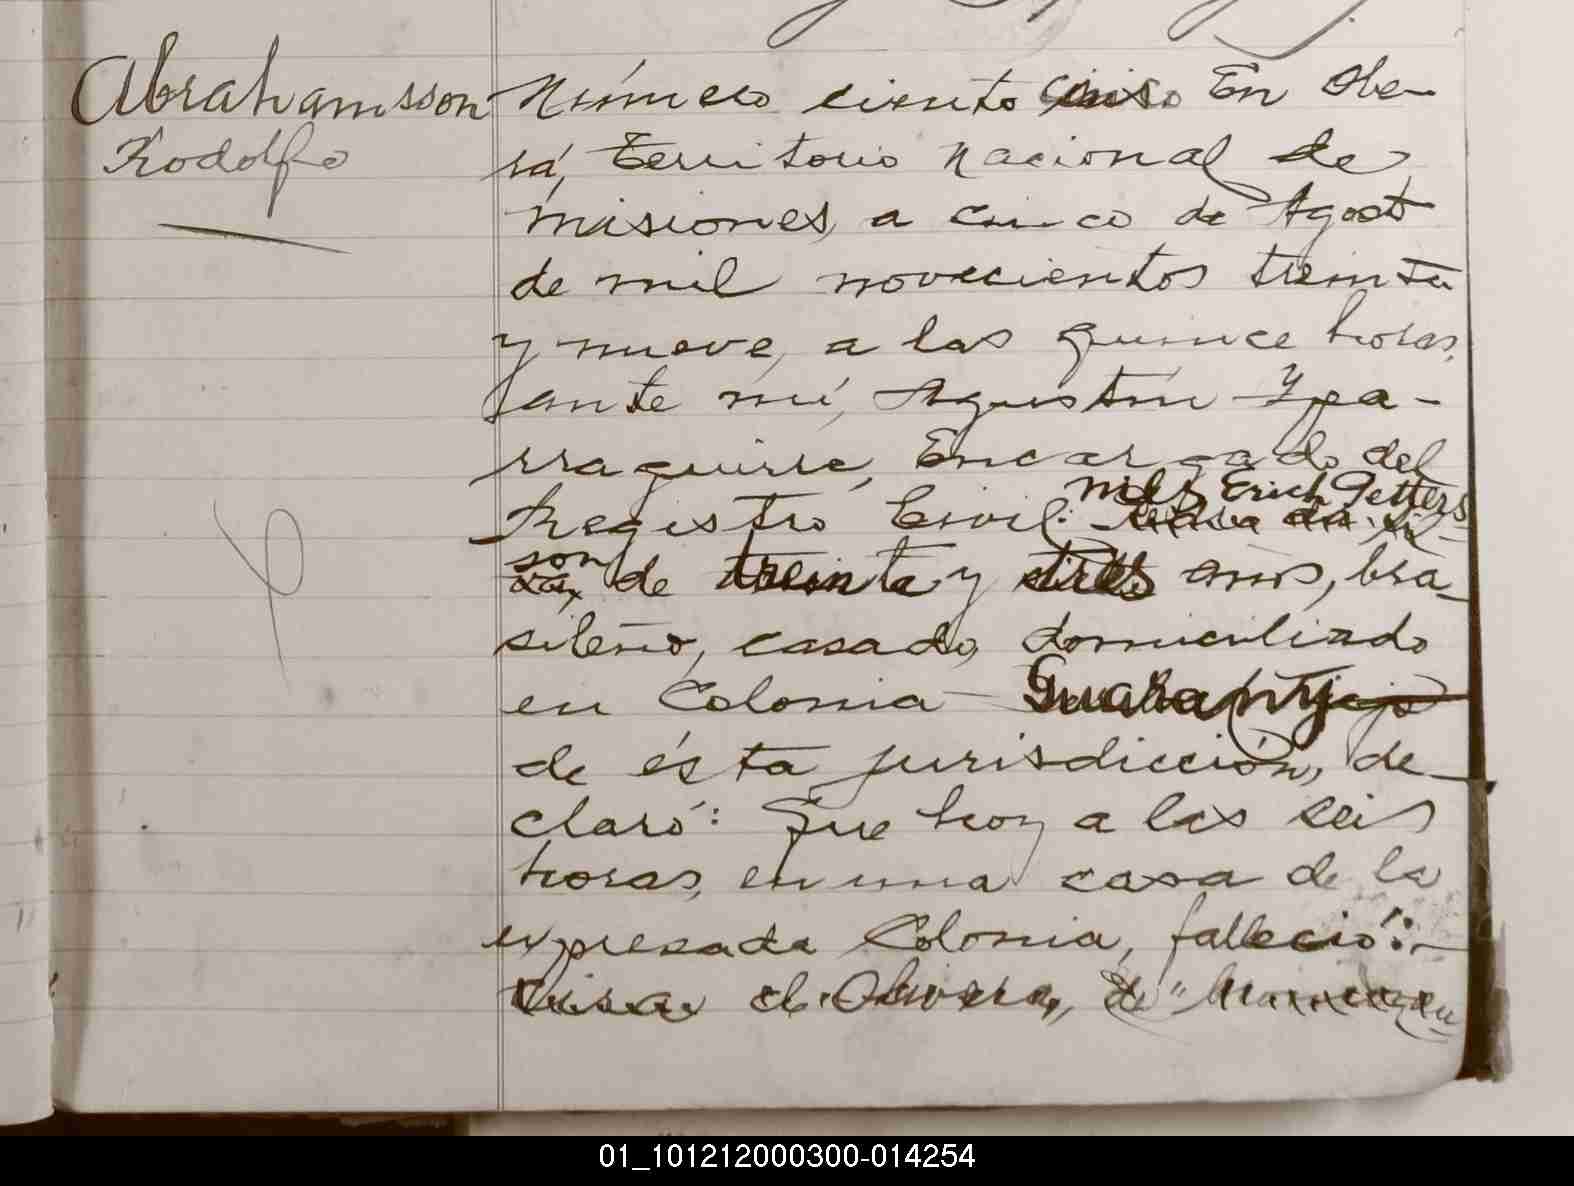 Abrahamsson
Rodolfo
Número ciento cinco En Obe-
rá, Territorio Nacional de
Misiones, a cinco de Agosto
de mil novecientos treinta
y nueve, a las quince horas,
ante mí, Agustín Ypa-
rraguirre, Encargado del
Registro Civil: Nils Erich Petters
son de treinta y tres años, bra-
sileño, casado, domiciliado
en Colonia Guaraní
de ésta jurisdicción, de-
claró: Que hoy a las seis
horas, en una casa de la
expresada Colonia, falleció:-
de Olivera, de
01_101212000300-014254